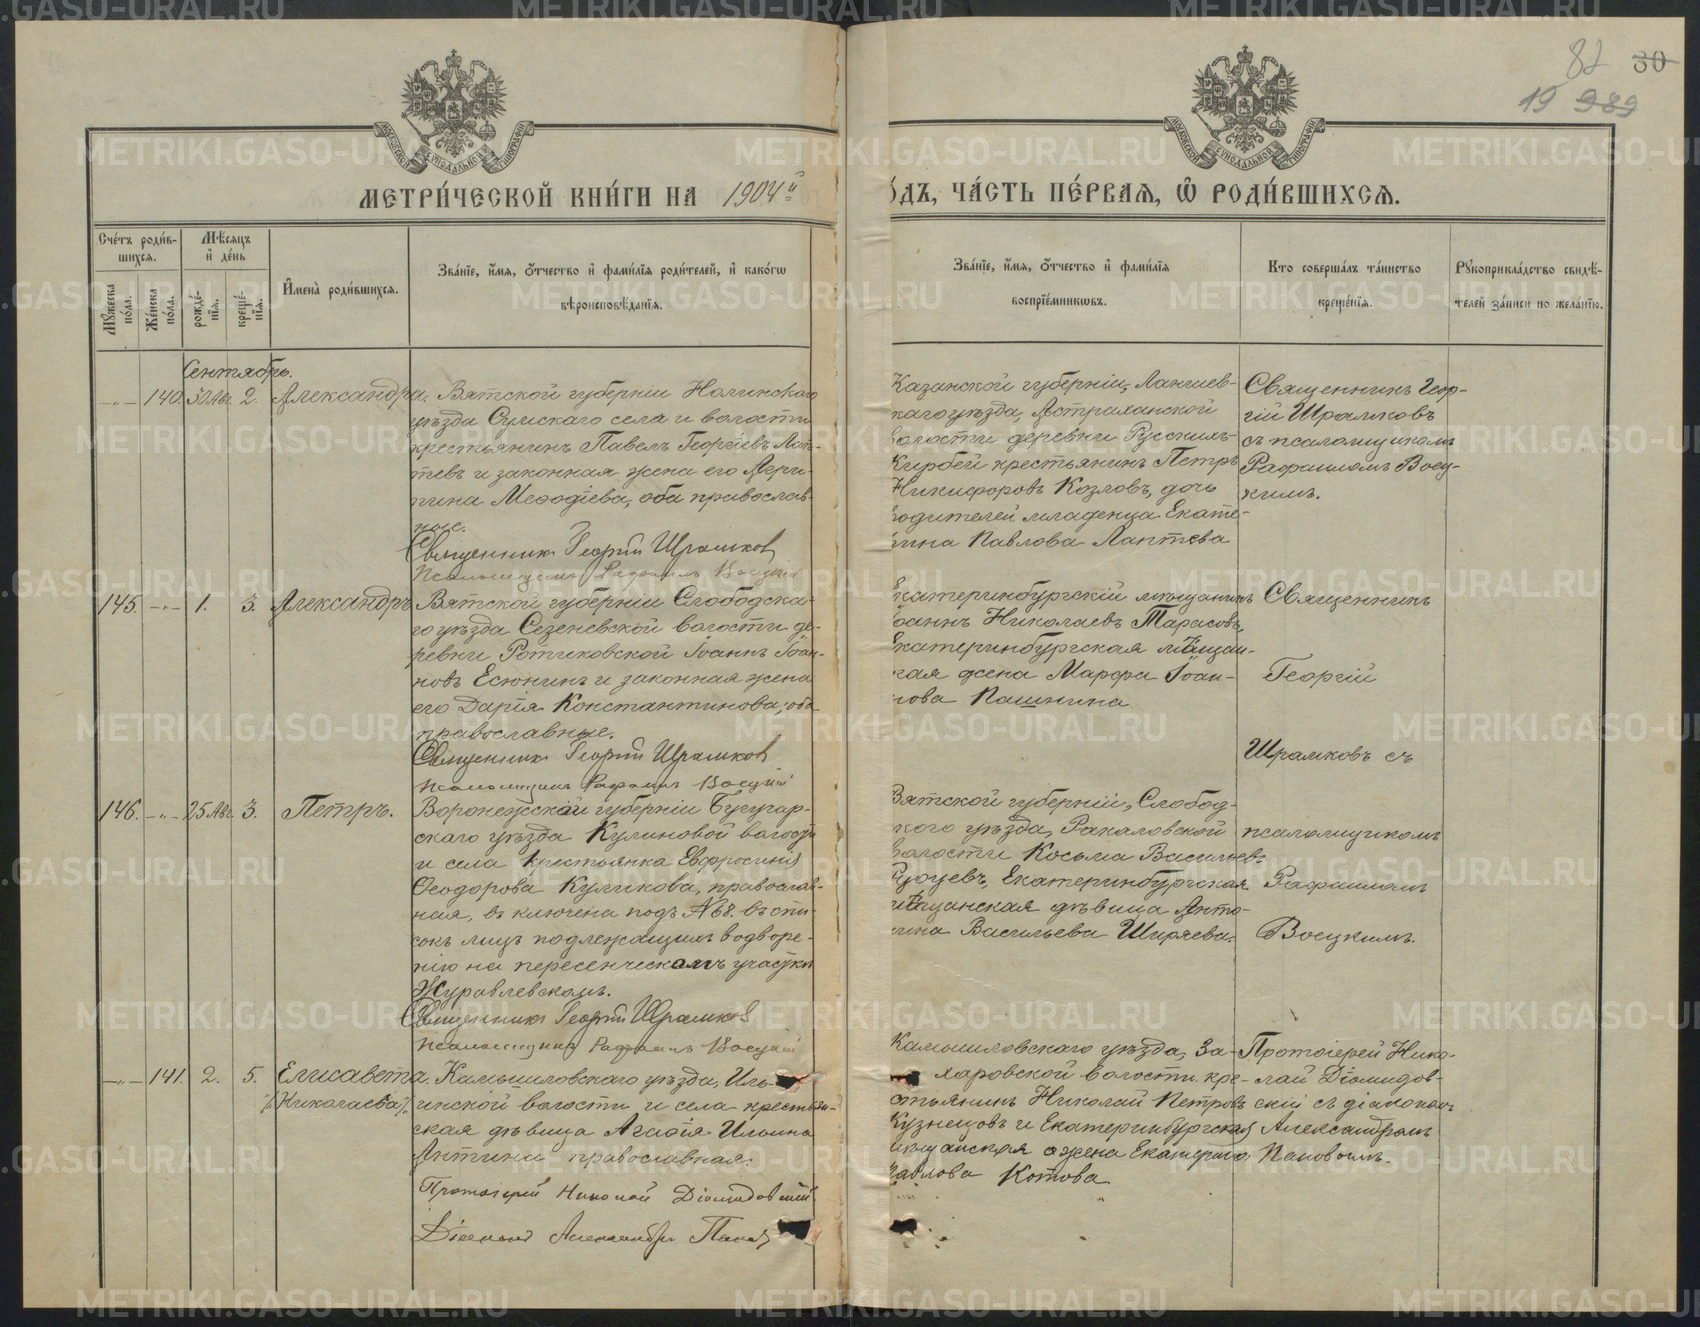 82 30
19 989
МЕТРИ́ЧЕСКОЙ КНИ́ГИ НА 1904й
ОДЪ, ЧА́СТЬ ПЕ́РВАѦ, Ѿ РОДИ́ВШИХСѦ.
Сче́тъ роди́в-
шихся.
Мꙋ́жеска по́ла.
Же́нска по́ла.
Мѣ́сяцъ и҆ де́нь
рожде́-
нїя.
креще́-
нїя.
И҆мена̀ роди́вшихся.
Зва́нїе, и҆́мя, ѻ҆́тчество и҆ фами́лїя роди́телей, и҆ како́гѡ
вѣроисповѣ́данїя.
Зва́нїе, и҆́мя, ѻ҆́тчество и҆ фами́лїя
воспрїе́мникѡвъ.
Кто̀ соверша́лъ та́инство
креще́нїя.
Рꙋкоприкла́дство свидѣ́-
телей за́писи по жела́нїю.
Сентябрь.
—„— 140. 30 Авг. 2. Александра.
Вятской губерніи Нолинскаго
уѣзда Сунскаго села и волости
крестьянинъ Павелъ Георгіевъ Лап-
тевъ и законная жена его Агри-
пина Меѳодіева, оба православ-
ные.
Священникъ Георгій Шрамковъ
Псаломщикъ Рафаилъ Воецкій
Казанской губерніи, Лаишев-
скаго уѣзда, Астраханской
волости деревни Русскихъ-
Кирбей крестьянинъ Петръ
Никифоровъ Козловъ, дочь
родителей младенца Екате-
рина Павлова Лаптева
Священникъ Геор-
гій Шрамковъ
съ псаломщикомъ
Рафаиломъ Воец-
кимъ.
145. —„— 1. 3. Александръ
Вятской губерніи Слободска-
го уѣзда Сезеневской волости де-
ревни Ротиковской Іоаннъ Іоан-
новъ Есюнинъ и законная жена
его Дарія Константинова; оба
православные.
Священникъ Георгій Шрамковъ
Псаломщикъ Рафаилъ Воецкій
Екатеринбургскій мѣщанинъ
Іоаннъ Николаевъ Тарасовъ,
Екатеринбургская мѣщан-
ская жена Марфа Іоан-
нова Пашнина
Священникъ
Георгій
Шрамковъ съ
146. —„— 25 Авг. 3. Петръ.
Воронежской губерніи Бугучар-
скаго уѣзда Куликовой волости
и села крестьянка Евфросинія
Ѳеодорова Куликова, православ-
ная, въ ключена подъ №68. въ спи-
сокъ лицъ подлежащихъ водворе-
нію на пересенческомъ участкѣ
Журавлевскомъ.
Священникъ Георгій Шрамковъ
Псаломщикъ Рафаилъ Воецкій
Вятской губерніи, Слобод-
ского уѣзда, Рахаловской
волости Косьма Васильев-
Екатеринбургская
мѣщанская дѣвица Анто-
нина Васильева Ширяева.
псаломщикомъ
Рафаиломъ
Воецкимъ.
—„— 141. 2. 5. Елисавета.
(Николаева).
Камышловскаго уѣзда, Иль-
инской волости и села крестьян-
ская дѣвица Агафія Ильина
Антина православная.
Протоіерей Николай Діомидовскій
Діаконъ Александръ Пановъ
Камышловскаго уѣзда, За-
харовской волости кре-
стьянинъ Николай Петровъ
Кузнецовъ и Екатеринбургская
мѣщанская жена Екатерина
Павлова Котова
Протоіерей Нико-
лай Діомидов-
скій съ діакономъ
Александромъ
Пановымъ.
METRIKI.GASO-URAL.RU